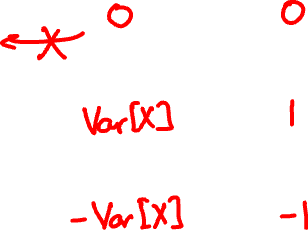 0 0
Var[X] 1
-Var[X] -1